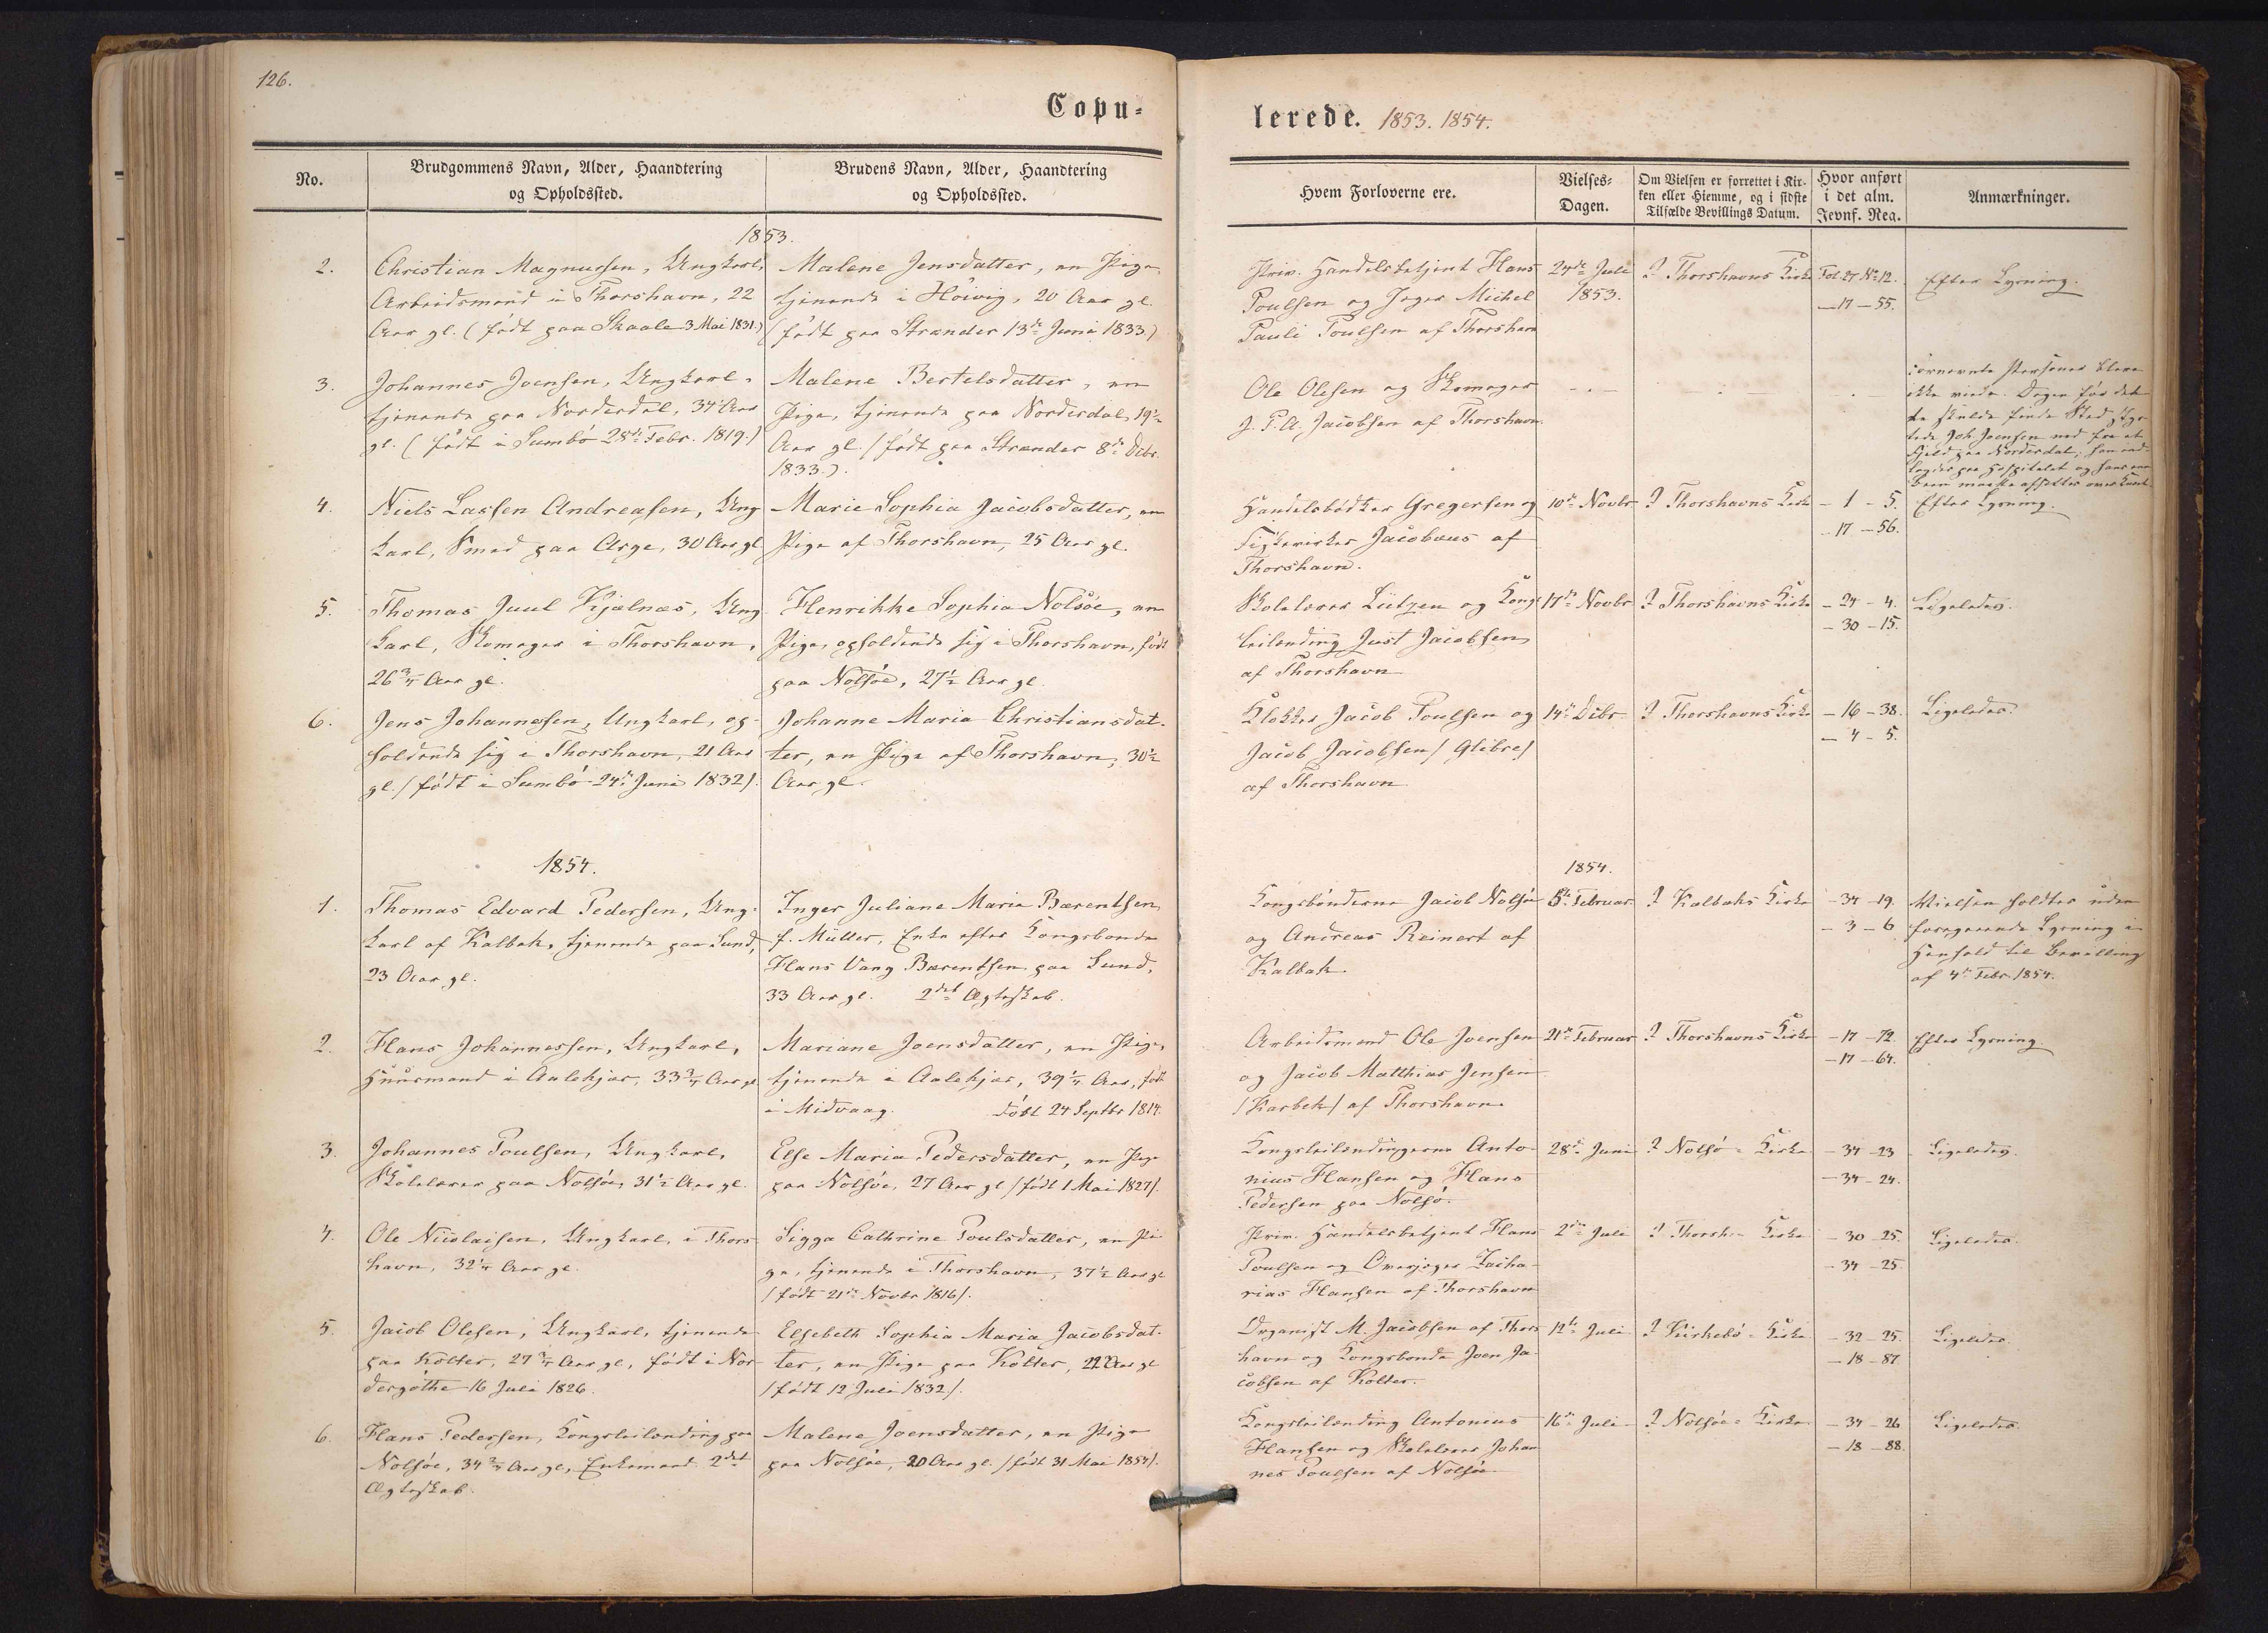 126.
Copu-
lerede. 1853. 1854.
No.
Brudgommens Navn, Alder, Haandtering
og Opholdssted.
Brudens Navn, Alder, Haandtering
og Opholdssted.
Hvem Forloverne ere.
Vielses-
Dagen.
Om Vielsen er forrettet i Kir-
ken eller Hiemme, og i sidste
Tilfælde Bevillings Datum.
Hvor anført
i det alm.
Jevnf. Reg.
Anmærkninger.
1853.
2.
Christian Magnussen, Ungkarl,
Arbeidsmand i Thorshavn, 22
Aar gl. (født paa Skaale 3 Mai 1831.)
Malene Jensdatter, en Pige
tjenende i Hóivig, 20 Aar gl.
(født paa Strænder 13de Juni 1833.)
Priv. Handelsbetjent Hans
Poulsen og Jeger Michel
Pauli Poulsen af Thorshavn
24de Juli
1853.
I Thorshavns Kirke
Fol. 27. No 12.
— 17 — 55.
Efter Lysning.
3.
Johannes Joensen, Ungkarl,
tjenende paa Norderdal, 34 Aar
gl. (født i Sumbó 28de Febr. 1819.)
Malene Bertelsdatter, en
Pige, tjenende paa Norderdal, 19½
Aar gl. (født paa Strænder 8de Decbr.
1833.).
Ole Olesen og Skomager
J. P. A. Jacobsen af Thorshavn.
Fornævnte Personer bleve
ikke viede. Dagen før det-
te skulde finde Sted, styr-
tede Joh. Joensen ned fra et
Fjeld paa Norderdal; han ind-
lagdes paa Hospitalet og hans ene
Been maatte afsættes over Knæet.
4.
Niels Lassen Andreasen, Ung
karl, Smed paa Arge, 30 Aar gl.
Marie Sophia Jacobsdatter, en
Pige af Thorshavn, 25 Aar gl.
Handelsbødker Gregersen og
Jacobæus af
Thorshavn.
10de Novbr
I Thorshavns Kirke
— 1 — 5.
— 17 — 56.
Efter Lysning.
5.
Thomas Juul Kjælnæs, Ung
karl, Skomager i Thorshavn,
26¾ Aar gl.
Henrikke Sophia Nolsöe, en
Pige, opholdende sig i Thorshavn, født
paa Nolsöe, 27½ Aar gl.
Skolelærer Lützen og Konge
leilending Just Jacobsen
af Thorshavn
17de Novbr
I Thorshavns Kirke
— 24 — 4.
— 30 — 15.
Ligeledes.
6.
Jens Johannesen, Ungkarl, op-
holdende sig i Thorshavn, 21 Aar
gl. / født i Sumbó 24de Juni 1832 /.
Johanne Maria Christiansdat-
ter, en Pige af Thorshavn, 30½
Aar gl.
Klokker Jacob Poulsen og
Jacob Jacobsen / Glibre /
af Thorshavn
14de Decbr
I Thorshavns Kirke
— 16 — 38.
— 4 — 5.
Ligeledes.
1854.
1854.
1.
Thomas Edvard Pedersen, Ung-
karl af Kalbak, tjenende paa Sund,
23 Aar gl.
Inger Juliane Maria Bærentsen
f. Müller, Enke efter Kongsbonde
Hans Vang Bærentsen paa Sund,
33 Aar gl. 2det Ægteskab.
Kongsbønderne Jacob Nolsöe
og Andreas Reinert af
Kalbak.
5te Februar
I Kalbaks Kirke
— 34 — 19.
— 3 — 6
Vielsen holdtes uden
foregaaende Lysning i
Henhold til Bevilling
af 4de Febr. 1854.
2.
Hans Johannessen, Ungkarl,
Huusmand i Aalekjær, 33¾ Aar gl
Mariane Joensdatter, en Pige,
tjenende i Aalekjær, 39¼ Aar, født
i Midvaag. Født 24 Septbr 1814.
Arbeidsmand Ole Joensen
og Jacob Matthias Jensen
/ Karbek / af Thorshavn.
21de Februar
I Thorshavns Kirke
— 17 — 72.
— 17 — 64.
Efter Lysning.
3.
Johannes Poulsen, Ungkarl,
Skolelærer paa Nolsöe, 31½ Aar gl.
Else Maria Pedersdatter, en Pige
paa Nolsöe, 27 Aar gl / født 1 Mai 1827 /.
Kongsleilendingerne Anto-
nius Hansen og Hans
Pedersen paa Nolsö.
28de Juni
I Nolsö - Kirke
— 34 — 23
— 34 — 24.
Ligeledes.
4.
Ole Nicolaisen, Ungkarl, i Thors-
havn, 32¼ Aar gl.
Sigga Cathrine Poulsdatter, en Pi-
ge, tjenende i Thorshavn, 37½ Aar gl
/ født 21de Novbr 1816 /.
Priv. Handelsbetjent Hans
Poulsen og Overjeger Zacha-
rias Hansen af Thorshavn
2den Juli
I Thorsh. - Kirke
— 30 — 25.
— 34 — 25.
Ligeledes.
5.
Jacob Olesen, Ungkarl, tjenende
paa Kolter, 27¾ Aar gl, født i Nor-
dergöthe 16 Juli 1826.
Elsebeth Sophia Maria Jacobsdat-
ter, en Pige paa Kolter, 22 Aar gl
/ født 12 Juli 1832 /.
Organist M. Jacobsen af Thors-
havn og Kongsbonde Joen Ja-
cobsen af Kolter.
12te Juli
I Kirkebó - Kirke
— 32 — 25.
— 18 — 87
Ligeledes.
6.
Hans Pedersen, Kongsleilending paa
Nolsöe, 34¾ Aar gl, Enkemand. 2det
Ægteskab.
Malene Joensdatter, en Pige
paa Nolsöe, 20 Aar gl. / født 31 Mai 1854 /.
Kongsleilending Antonius
Hansen og Skolelærer Johan
nes Poulsen af Nolsöe
16de Juli
I Nolsöe - Kirke
— 34 — 26
— 18 — 88.
Ligeledes.